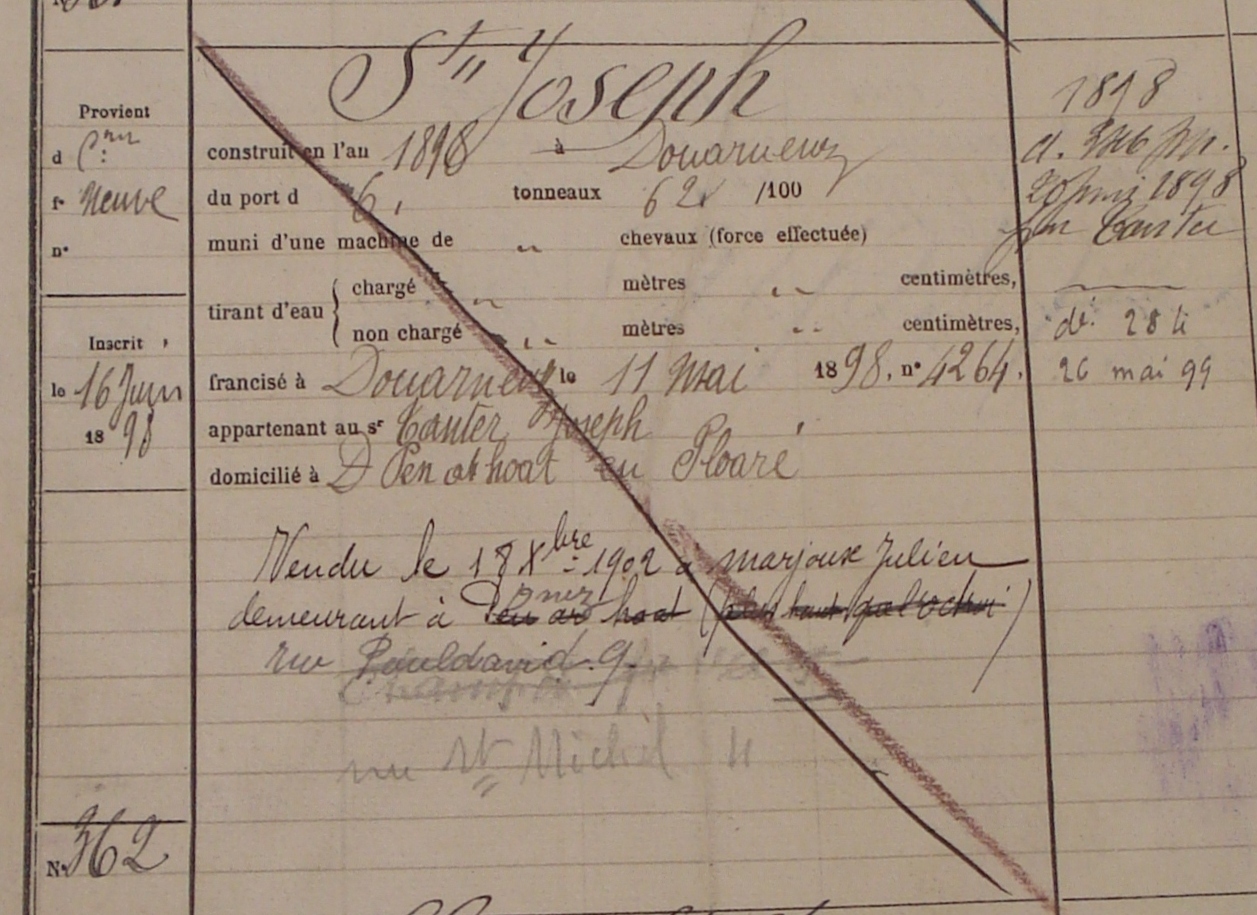 St Joseph
Provient
d Con
fe Neuve
no
construit en l'an 1898 à Douarnenez
du port d 6, tonneaux 62 /100
muni d'une machine de " chevaux (force effectuée)
tirant d'eau { chargé " mètres " centimètres,
non chargé " mètres " centimètres,
francisé à Douarnenez le 11 Mai 1898. no 4264.
appartenant au sr Canter Joseph
domicilié à D Pen ar hoat en Ploaré
Inscrit
le 16 Juin
1898
Vendu le 18 Xbre 1902 à Marjoux Julien
demeurant à Dznez Pen ar hoat
rue Pouldavid. 9.
rue St Michel 11
No 362
1898
20 Juin 1898
dé. 284
26 mai 99